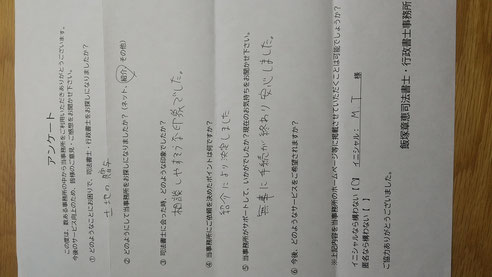 アンケート
この度は、数ある事務所の中から当事務所をご利用いただきありがとうございます。
今後のサービス向上のため、皆様のご意見・ご感想をお聞かせ下さい。
① どのようなことにお困りで、司法書士・行政書士をお探しになりましたか？
土地の贈与
② どのようにして当事務所をお探しになりましたか？（ネット、紹介、その他）
③ 司法書士に会った時、どのような印象でしたか？
相談しやすそうな印象でした。
④ 当事務所にご依頼を決めたポイントは何ですか？
紹介により決定しました
⑤ 当事務所がサポートして、いかがでしたか？現在のお気持ちをお聞かせ下さい。
無事に手続が終わり安心しました。
⑥ 今後、どのようなサービスをご希望されますか？
※上記内容を当事務所のホームページ等に掲載させていただくことは可能でしょうか？
イニシャルなら構わない【〇】 イニシャル： M T 様
匿名なら構わない【 】
ご協力ありがとうございました。
飯塚章恵司法書士・行政書士事務所